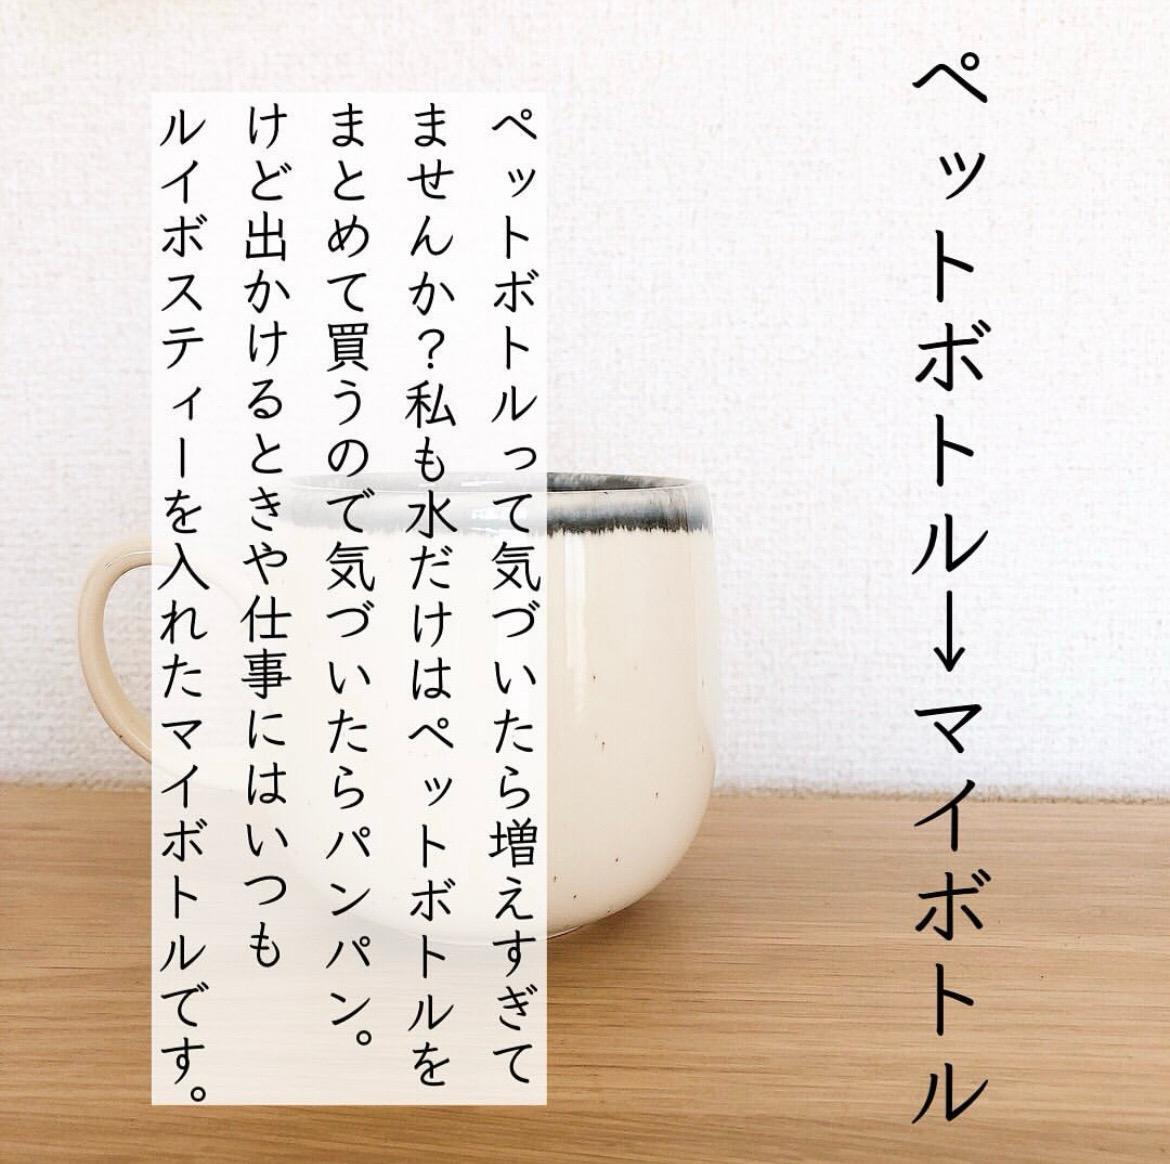 ペットボトル→マイボトル
ペットボトルって気づいたら増えすぎて
ませんか？私も水だけはペットボトルを
まとめて買うので気づいたらパンパン。
けど出かけるときや仕事にはいつも
ルイボスティーを入れたマイボトルです。